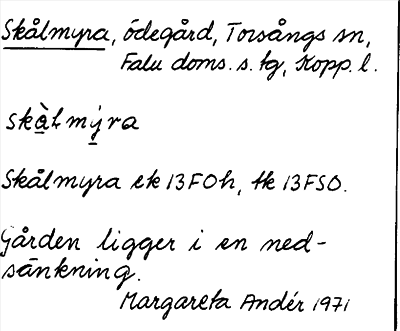 Skålmyra, ödegård, Torsångs sn,
Falu doms. s. tg, Kopp. l.
skàlmýra
Skålmyra ek 13F0h, tk 13FSO.
Gården ligger i en ned-
sänkning.
Margareta Andér 1971